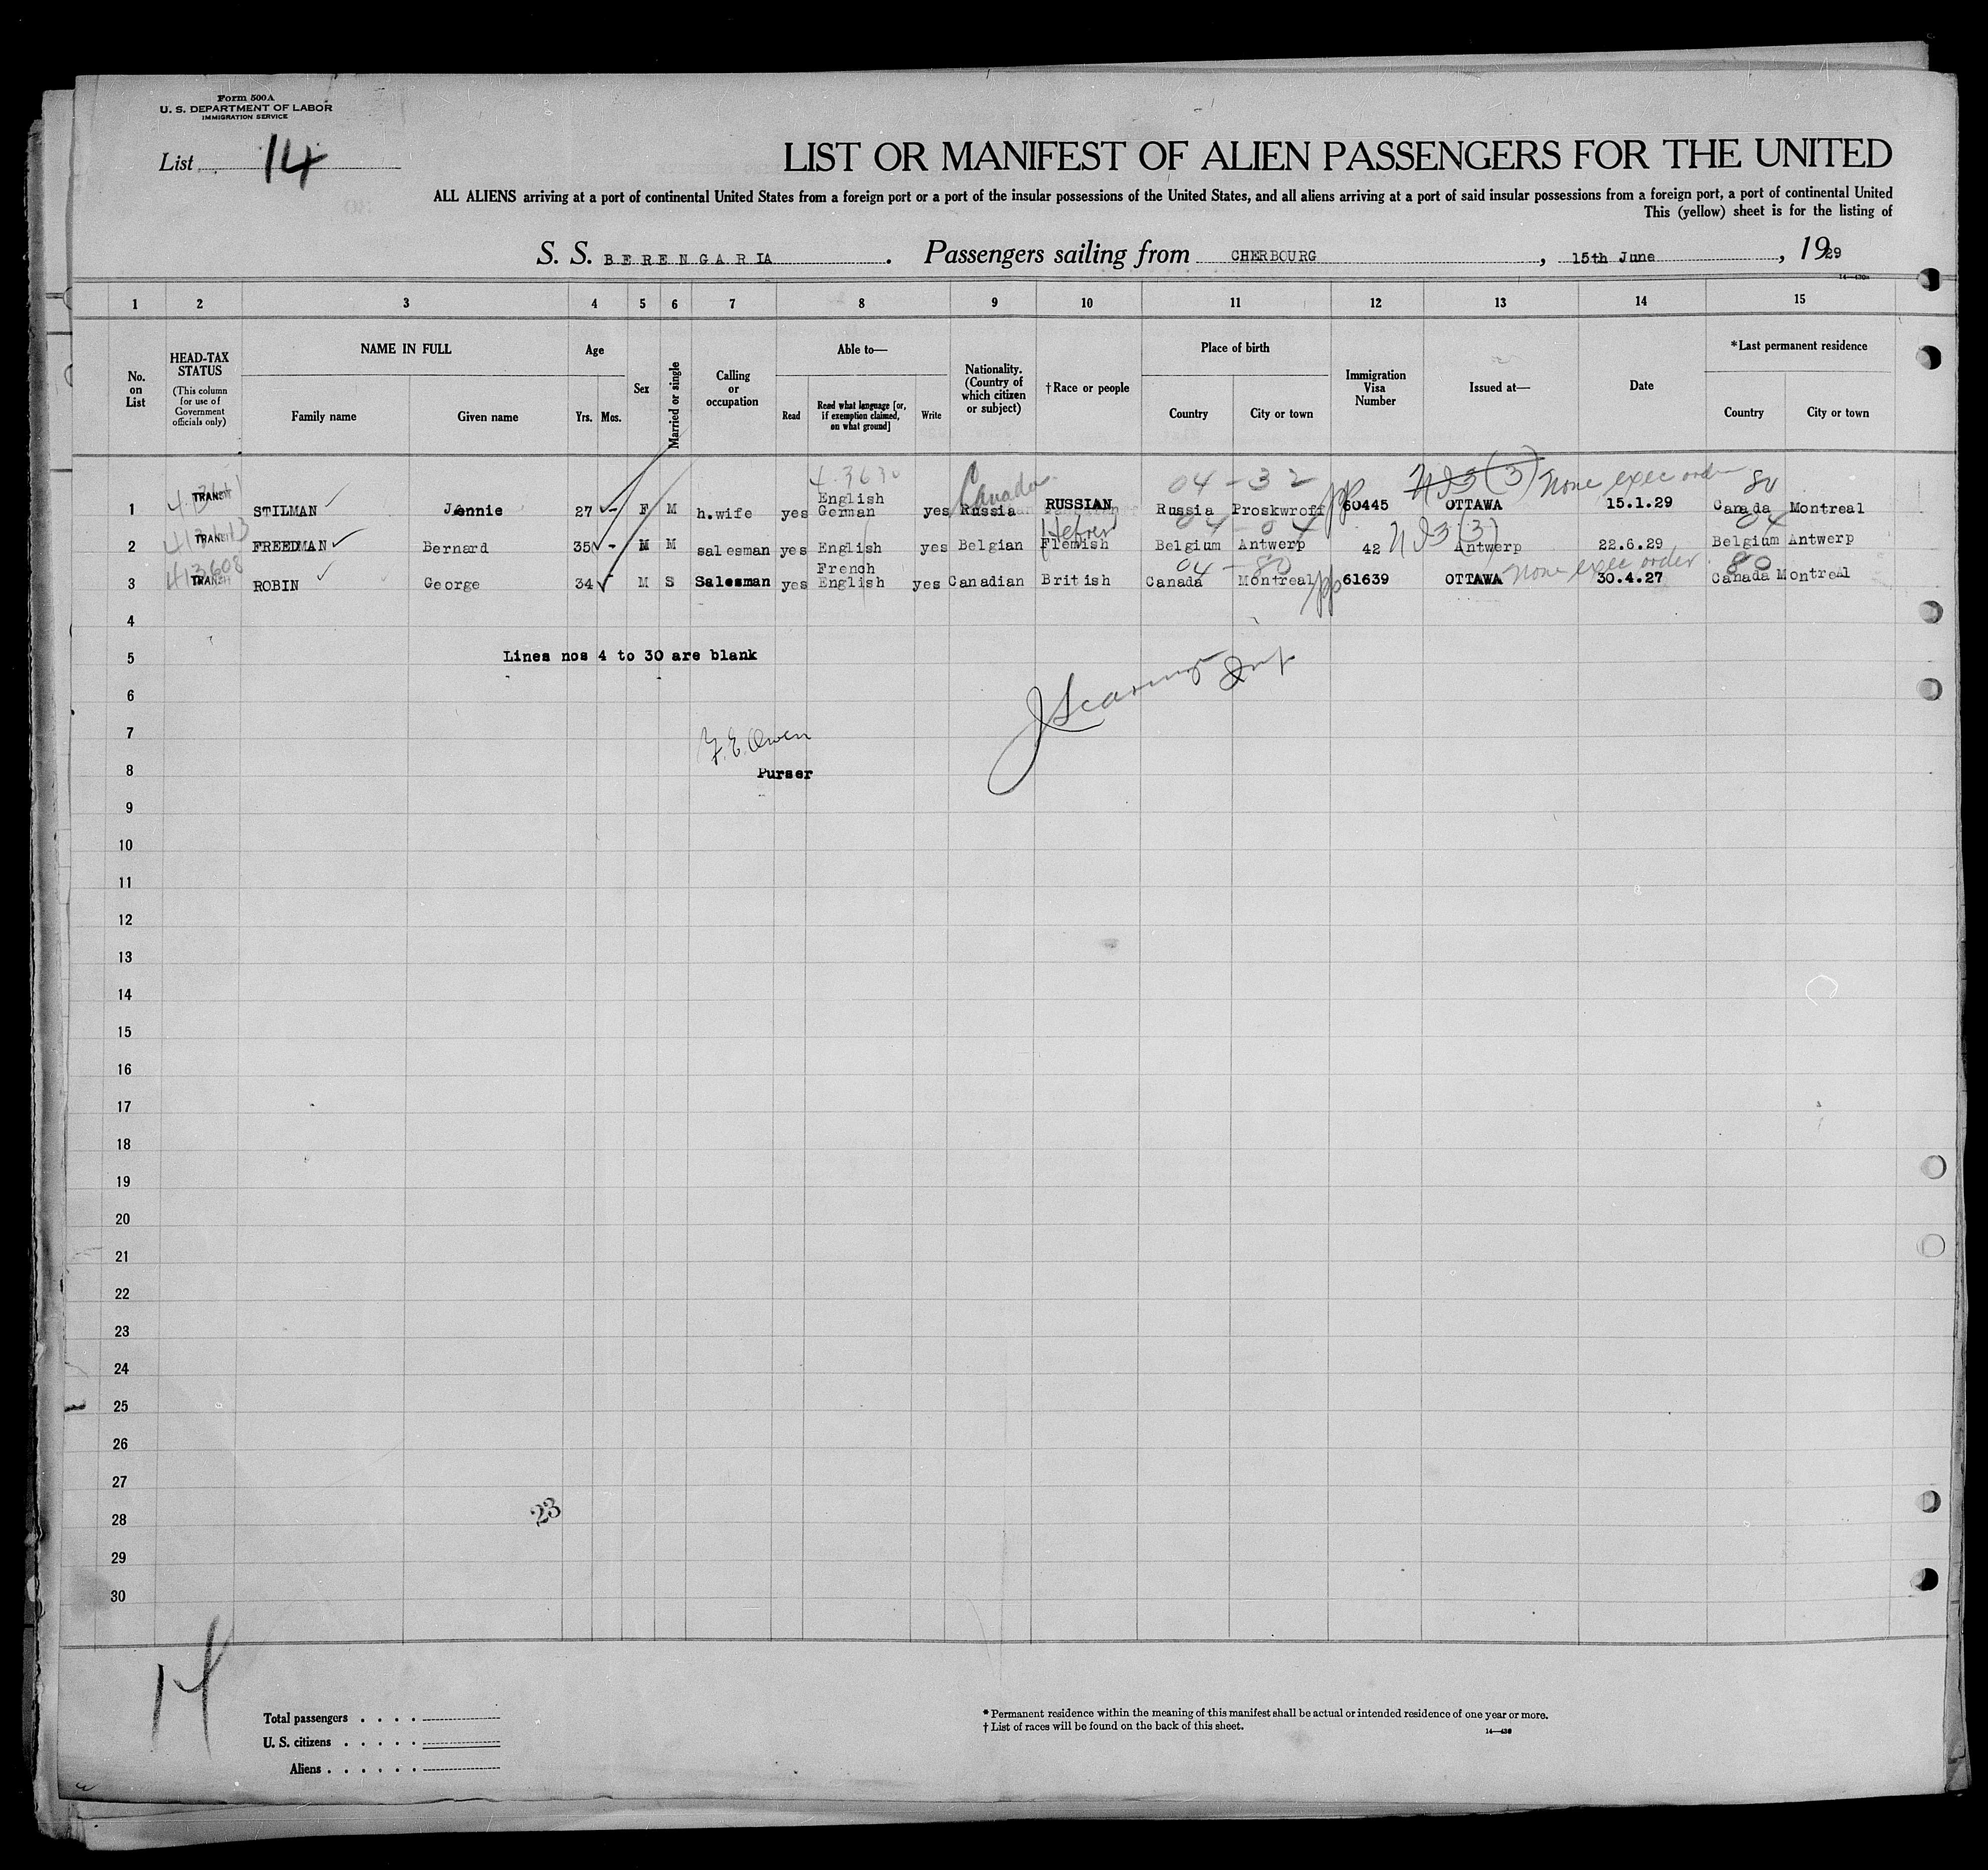 Form 500A
U. S. DEPARTMENT OF LABOR
IMMIGRATION SERVICE
List 14
LIST OR MANIFEST OF ALIEN PASSENGERS FOR THE UNITED
ALL ALIENS arriving at a port of continental United States from a foreign port or a port of the insular possessions of the United States, and all aliens arriving at a port of said insular possessions from a foreign port, a port of continental United
This (yellow) sheet is for the listing of
S. S. BERENGARIA. Passengers sailing from CHERBOURG, 15th June, 1929
1 2 3 4 5 6 7 8 9 10 11 12 13 14 15
No. on List
HEAD-TAX STATUS
(This column for use of Government officials only)
NAME IN FULL
Family name Given name
Age
Yrs. Mos.
Sex
Married or single
Calling or occupation
Able to—
Read
Read what language [or, if exemption claimed, on what ground]
Write
Nationality. (Country of which citizen or subject)
†Race or people
Place of birth
Country City or town
Immigration Visa Number
Issued at—
Date
*Last permanent residence
Country City or town
4-3630 Canada 04-32 NI3(3) None exec order 80
1 TRANSIT STILMAN Jennie 27 - F M h.wife yes English German yes Russia RUSSIAN Russia Proskwroff pp 60445 OTTAWA 15.1.29 Canada Montreal
Hebrew 04 - 04 NI3(3) 04
2 TRANSIT FREEDMAN Bernard 35 - M M salesman yes English yes Belgian Flemish Belgium Antwerp 42 Antwerp 22.6.29 Belgium Antwerp
04-80 None exec order 80
3 413608 TRANSIT ROBIN George 34 - M S Salesman yes French English yes Canadian British Canada Montreal pp 61639 OTTAWA 30.4.27 Canada Montreal
4
5 Lines nos 4 to 30 are blank
6
7 F.E. Owen
8 Purser
9
10
11
12
13
14
15
16
17
18
19
20
21
22
23
24
25
26
27
28 23
29
30
14
Total passengers
U. S. citizens
Aliens
* Permanent residence within the meaning of this manifest shall be actual or intended residence of one year or more.
† List of races will be found on the back of this sheet.
14—430